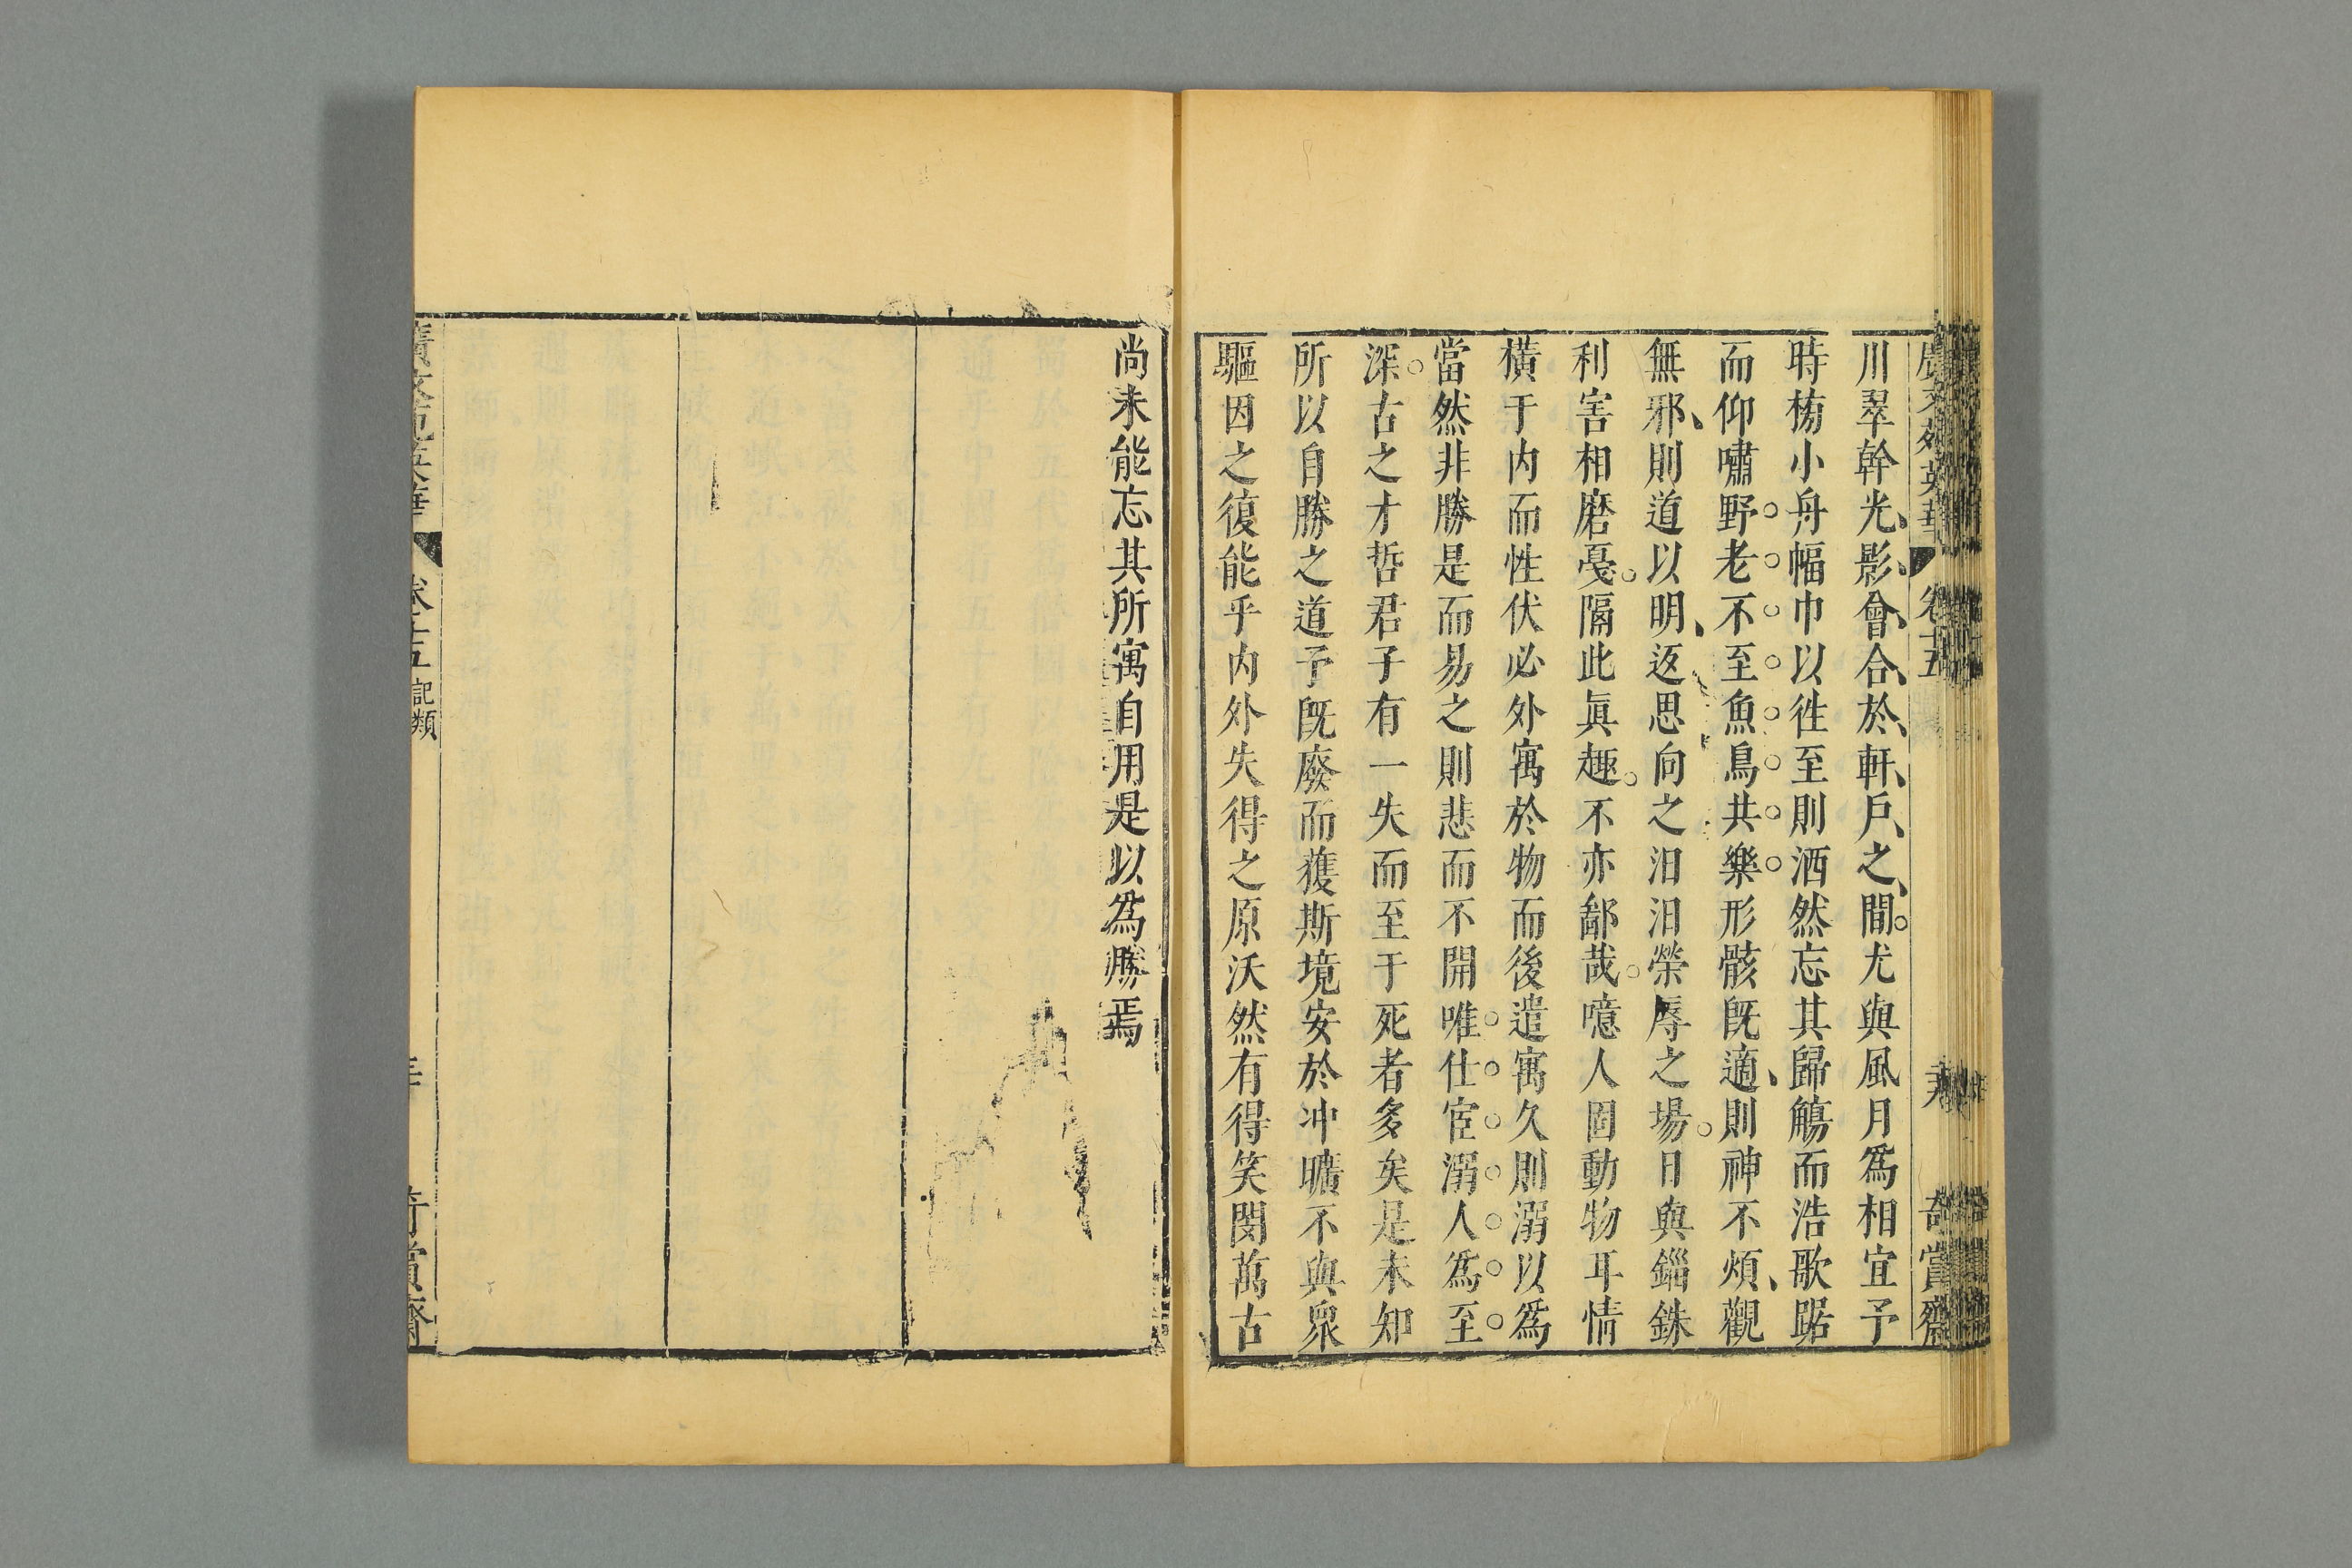 廣文苑英華 卷十五 奇賞齋
川翠幹光影會合於軒戶之間尤與風月爲相宜予
時榜小舟幅巾以徃至則洒然忘其歸觴而浩歌踞
而仰嘯野老不至魚鳥共樂形骸旣適則神不煩觀
無邪則道以明返思向之汨汨榮辱之場日與錙銖
利害相磨戞隔此眞趣不亦鄙哉噫人固動物耳情
橫于内而性伏必外寓於物而後遣寓久則溺以爲
當然非勝是而易之則悲而不開唯仕宦溺人爲至
深古之才哲君子有一失而至于死者多矣是未知
所以自勝之道予旣廢而獲斯境安於冲曠不與衆
驅因之復能乎内外失得之原沃然有得笑閔萬古
尚未能忘其所寓自用是以爲勝焉
廣文苑英華 卷十五 記類 奇賞齋